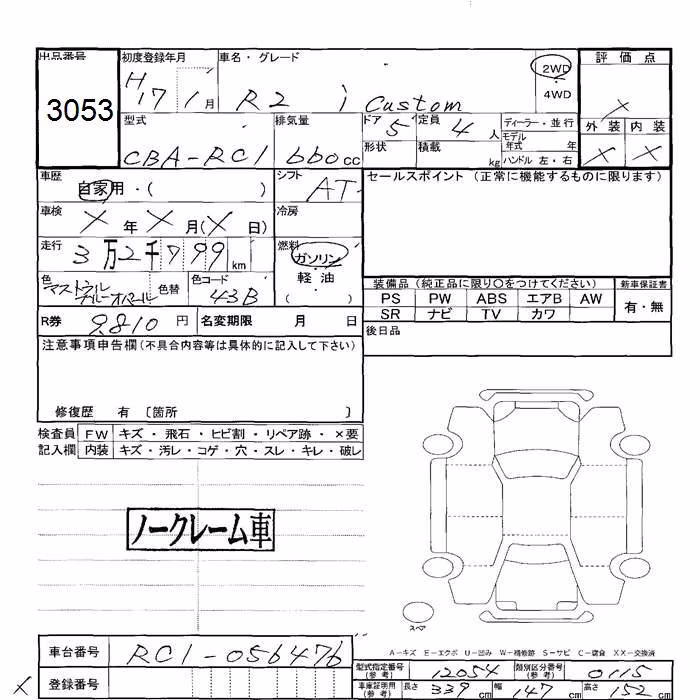 出品番号 初度登録年月 車名・グレード 2WD 評価点
3053 H17 1月 R2 i Custom 4WD ×
型式 排気量 ドア 5 定員 4人 ディーラー・並行 外装 内装
CBA-RC1 660cc 形状 積載 kg モデル年式 年 × ×
ハンドル 左・右
車歴 自家用・( ) シフト AT セールスポイント (正常に機能するものに限ります)
車検 × 年 × 月(× 日) 冷房
走行 3万2千799km 燃料 ガソリン
軽油
( )
色 色替 色コード 43B 装備品 (純正品に限り○をつけてください) 新車保証書
PS PW ABS エアB AW 有・無
R券 9,810円 名変期限 月 日 SR ナビ TV カワ
後日品
注意事項申告欄(不具合内容等は具体的に記入して下さい)
修復歴 有 〔箇所 〕
検査員 FW キズ・飛石・ヒビ割・リペア跡・×要
記入欄 内装 キズ・汚レ・コゲ・穴・スレ・キレ・破レ
ノークレーム車
スペア
A-キズ E-エクボ U-凹み W-補修跡 S-サビ C-腐食 XX-交換済
車台番号 RC1-056476 型式指定番号(参考) 12054 類別区分番号(参考) 0115
× 登録番号 車庫証明用(参考) 長さ 339cm 幅 147cm 高さ 152cm